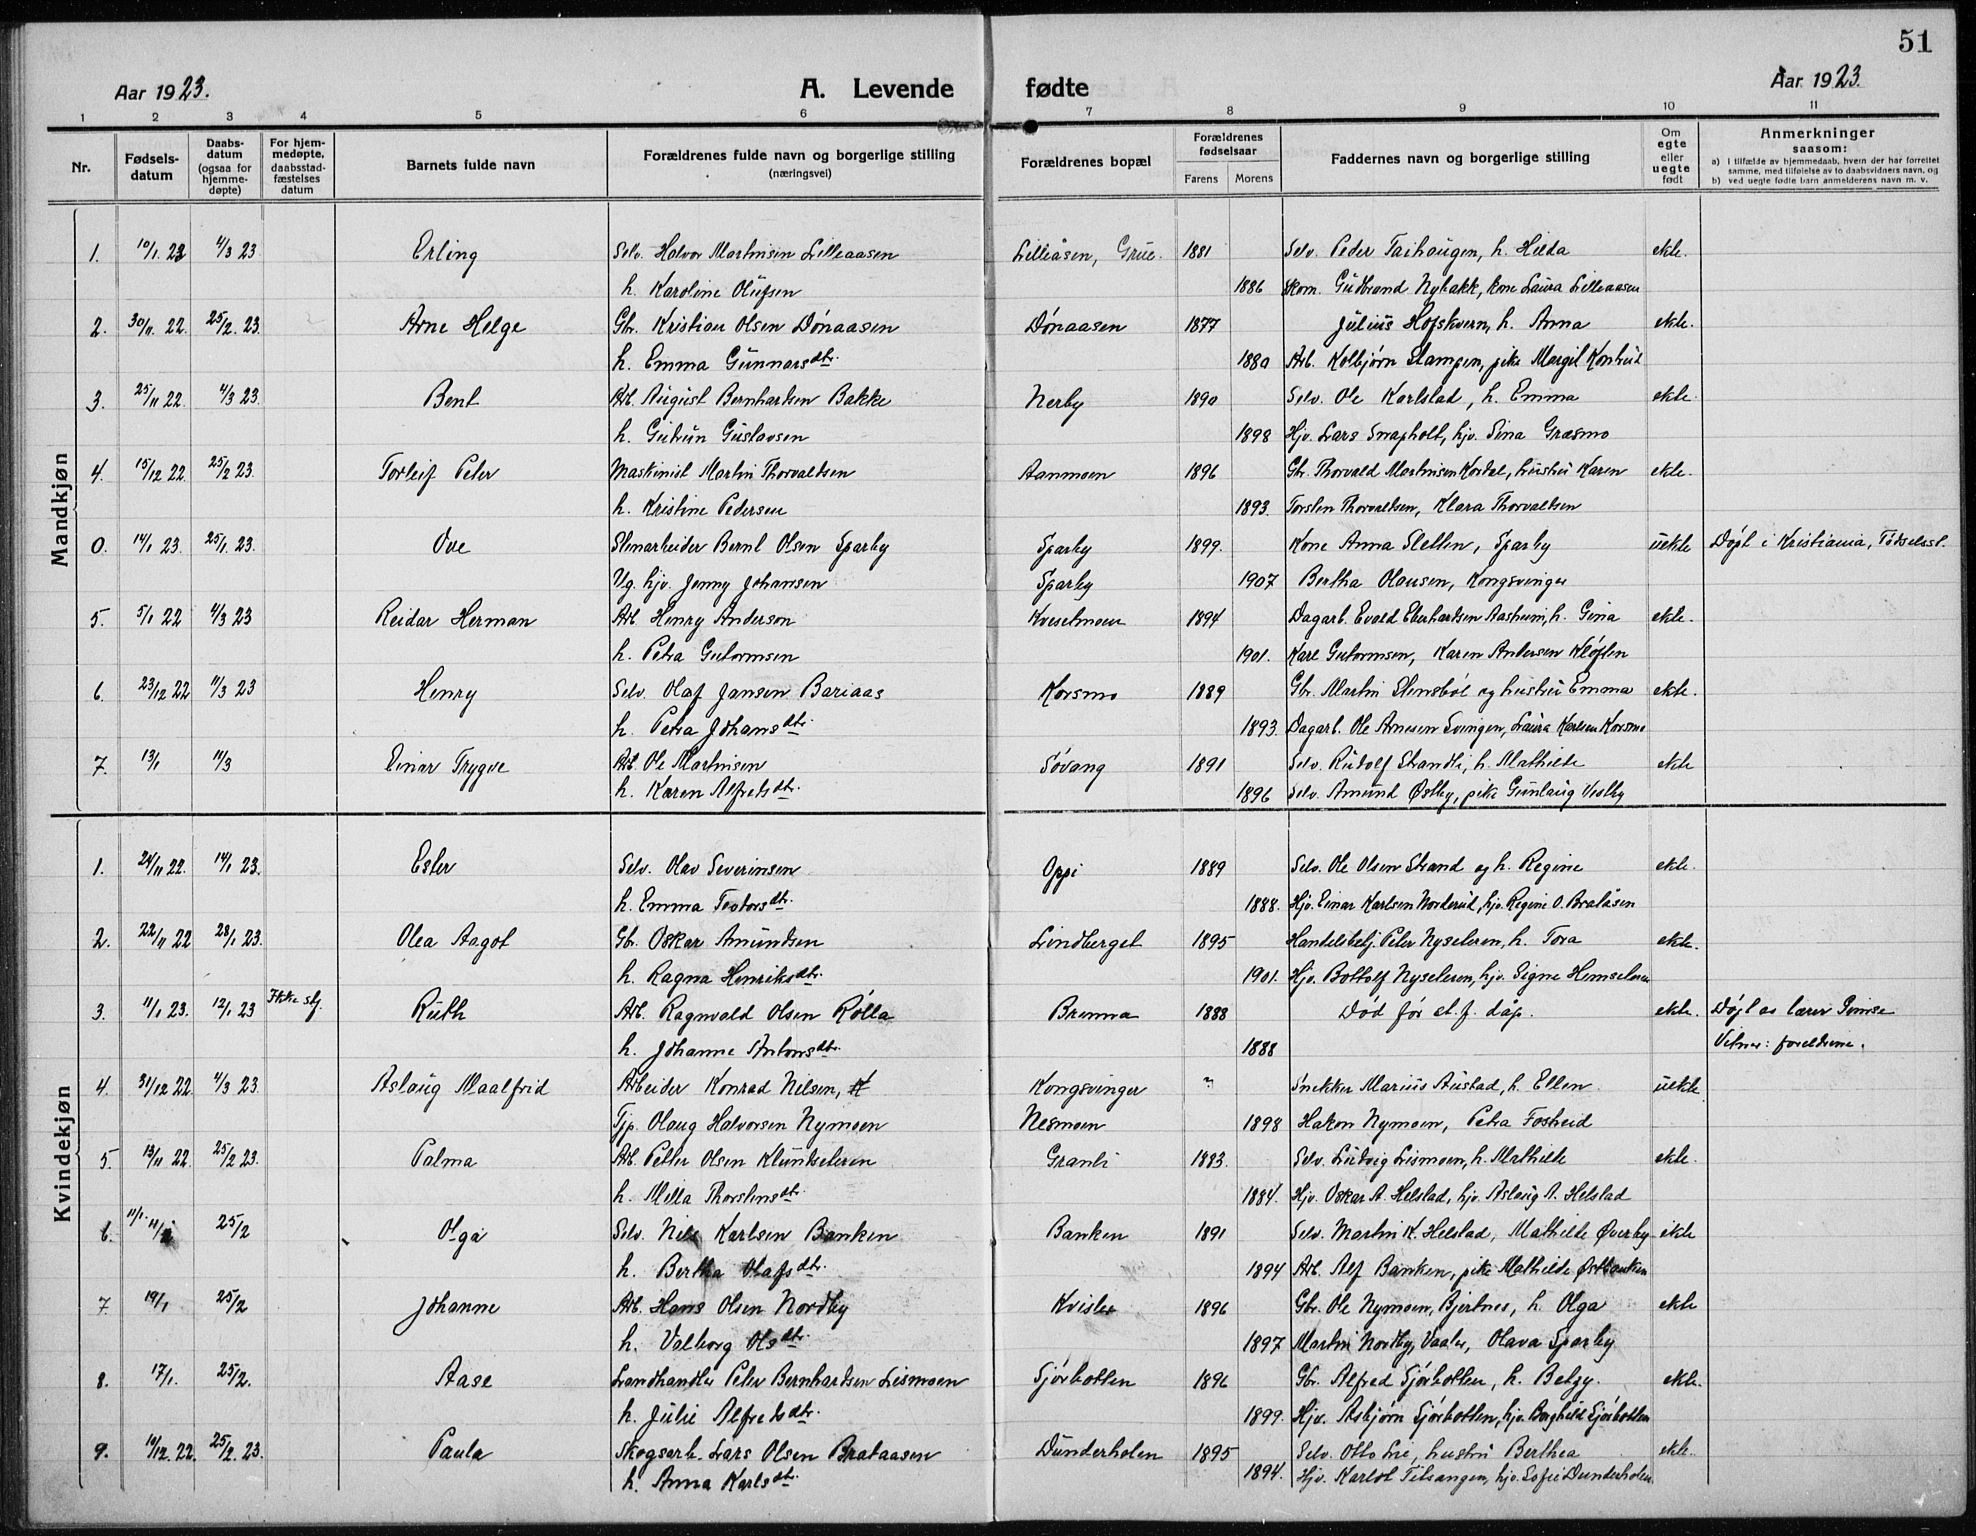 51
Aar 1923. A. Levende fødte Aar 1923.
1 2 3 4 5 6 7 8 9 10 11
Nr. Fødsels-datum Daabs-datum (ogsaa for hjemme-døpte) For hjem-medøpte, daabsstad-fæstelses datum Barnets fulde navn Forældrenes fulde navn og borgerlige stilling (næringsvei) Forældrenes bopæl Forældrenes fødselsaar Farens Morens Faddernes navn og borgerlige stilling Om egte eller uegte født Anmerkninger saasom:
a) I tilfælde av hjemmedaab, hvem der har forrettet samme, med tilføielse av to daabsvidners navn, og
b) ved uegte fødte barn anmelderens navn m. v.
Mandkjøn
1. 10/1. 23 4/3 23 Erling Selv. Halvor Martinsen Lilleaasen Lilleåsen, Grue. 1881 Selv. Peder Taihaugen, h. Hilda ekte.
h. Karoline Olufsen 1886 Skom. Gudbrand Nybakk, kone Laura Lilleaasen
2. 30/11. 22. 25/2. 23. Arne Helge Gbr. Kristian Olsen Dónaasen Dónaasen 1877 Julius Hofskvern, h. Anna ekte.
h. Emma Gunnarsdtr. 1880 Arb. Kolbjørn Slampen, pike Margit Konterud
3. 25/11 22. 4/3 23. Bent Arb. August Bernhartsen Bakke Nerby 1890 Selv. Ole Karlstad, h. Emma ekte.
h. Gudrun Gustavsen 1898 Hjv. Lars Snapholt, hjv. Sina Græsmo
4. 15/12 22. 25/2 23. Torleif Peter Maskinist Martin Thorvaldsen Aanmoen 1896 Gbr. Thorvald Martinsen Kordal, hustru Karen ekte.
h. Kristine Pedersen 1893. Torsten Thorvaldsen, Klara Thorvaldsen
0. 14/1 23. 25/1. 23. Ove Stenarbeider Bernt Olsen Sparby Sparby 1899. Kone Anna Sletten, Sparby uekte Døpt i Kristiania, Fødselsst.
Ug. hjv. Jenny Johansen Sparby 1907 Bertha Olausen, Kongsvinger
5. 5/1 22 4/3 23 Reidar Herman Arb. Henry Anderson Kveselmoen 1894 Dagarb. Evald Eberhardsen Aasheim, h. Gina ekte.
h. Petra Gutormsen 1901. Karl Gutormsen, Karen Andersen Kløften
6. 23/12 22 11/3 23 Henry Selv. Olaf Jansen Bariaas Korsmo 1889 Gbr. Martin Stensbøl og hustru Emma ekte.
h. Petra Johansdtr. 1893. Dagarb. Ole Arnesen Svingen, Laura Karlsen Korsmo
7. 13/1 11/3 Einar Trygve Arb. Ole Martinsen Søvang 1891 Selv. Rudolf Strandli, h. Mathilde ekte
h. Karen Alfredsdtr. 1896 Selv. Amund Østby, pike Gunlaug Vestby
Kvindekjøn
1. 24/11 22. 14/1 23. Ester Selv. Olav Severinsen Oppi 1889 Selv. Ole Olsen Strand og h. Regine ekte.
h. Emma Teodorsdtr. 1888. Hjv. Einar Karlsen Norderud, hjv. Regine O. Bratåsen
2. 22/11 22 28/1 23. Olea Aagot Gb. Oskar Amundsen Lindberget 1895 Handelsbetj. Peter Nyseteren, h. Tora ekte.
h. Ragna Henriksdtr. 1901. Hjv. Bottolf Nyseteren, hjv. Signe Hemseteren
3. 11/1 23. 12/1 23 Ikke stf. Ruth Arb. Ragnvald Olsen Rølla Brenna 1888 Død før st. f. dåp. ekte. Døpt av lærer Gimse
h. Johanne Antonsdtr. 1888 Vitner: foreldrene.
4. 31/12 22. 4/3 23. Aslaug Maalfrid Arbeider Konrad Nilsen, K Kongsvinger ? Snekker Marius Austad, h. Ellen. uekte
Tjp. Olaug Halvorsen Nymoen Nesmoen 1898 Hakon Nymoen, Petra Fosheid
5. 13/11 22. 25/2 23. Palma Arb. Petter Olsen Kluntseteren Granli 1883. Selv. Ludvig Lismoen, h. Mathilde ekte.
h. Milla Thorstensdtr 1884. Hjv. Oskar A. Helstad, hjv. Aslaug A. Helstad
6. 11/1. 11/1 25/2 Olga Selv. Nils Karlsen Banken Banken 1891 Selv. Martin K. Helstad, Mathilde Øverby ekte
h. Bertha Olafsdtr. 1894 Arb. Alf Banken, pike Mathilde Østbanken
7. 19/1 25/2 Johanne Arb. Hans Olsen Nordby Kvisler 1896 Gbr. Ole Nymoen, Bjertnes, h. Olga ekte
h. Valborg Olsdtr. 1897 Martin Nordby, Vaaler, Olava Sparby
8. 17/1. 25/2. Aase Landhandler Peter Bernhardsen Lismoen Sjørbotten 1896 Gbr. Alfred Sjørbotten, h. Betzy. ekte.
h. Julie Alfredsdtr. 1899. Hjv. Asbjørn Sjørbotten, hjv. Borghild Sjørbotten
9. 10/12. 22. 25/2. 23. Paula Skogsarb. Lars Olsen Brataasen Dunderholen 1895 Selv. Otto Lie, hustru Berthea ekte.
h. Anna Karlsdtr. 1894. Hjv. Karlot Tilsangen, hjv. Sofie Dunderholen